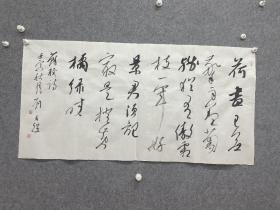 荷尽已无
擎雨盖菊
残犹有傲霜
枝一年好
景君须记
最是橙黄
橘绿时
苏轼诗